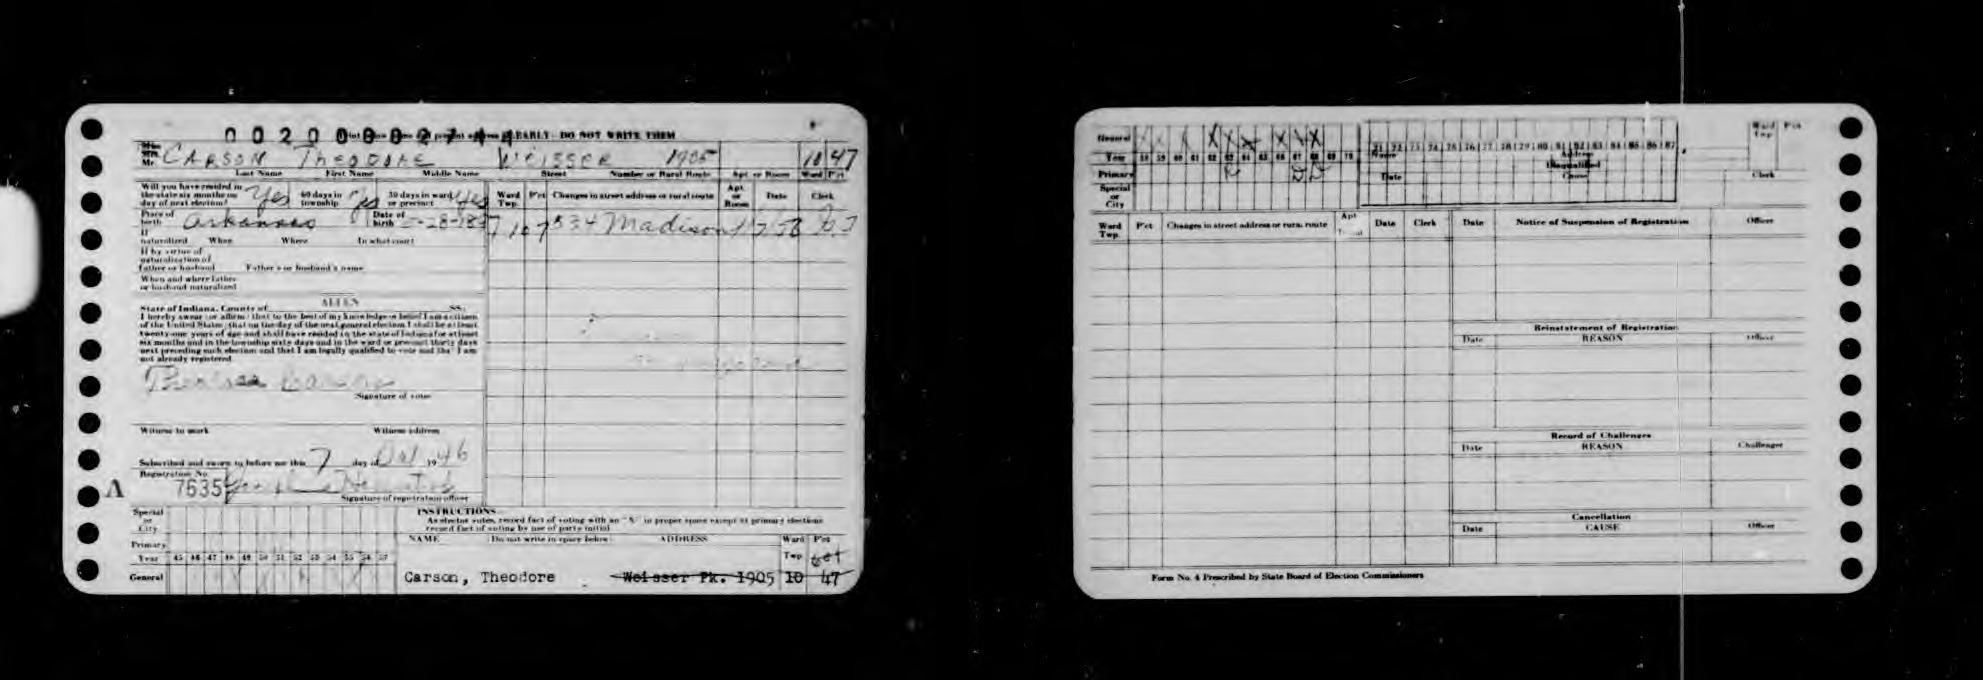 EARLY - DO NOT WRITE THEM
Mr. CARSON THEODORE WEISSER 1905 10 47
Last Name First Name Middle Name Street Number or Rural Route Apt or Room Ward P'ct
Will you have resided in the state six months on day of next election? Yes 60 days in township Yes 30 days in ward or precinct Yes
Ward Twp. P'ct Changes in street address or rural route Apt. or Room Date Clerk
Place of birth Arkansas Date of birth
Madison
If naturalized When Where In what court
If by virtue of naturalization of father or husband Father's or husband's name
When and where father or husband naturalized
ALLEN
State of Indiana, County of SS:
I hereby swear (or affirm) that to the best of my knowledge or belief I am a citizen
of the United States; that on the day of the next general election I shall be at least
twenty-one years of age and shall have resided in the state of Indiana for at least
six months and in the township sixty days and in the ward or precinct thirty days
next preceding such election and that I am legally qualified to vote and that I am
not already registered.
Signature of voter
Witness to mark Witness address
Subscribed and sworn to before me this 7 day of Oct 1946
Registration No.
A 7635
Signature of registration officer
Special or City
Primary
Year 45 46 47 48 49 50 51 52 53 54 55 56 57
General
INSTRUCTIONS
As elector votes, record fact of voting with an "X" in proper space except at primary elections
record fact of voting by use of party initial.
NAME Do not write in space below ADDRESS Ward Twp P'ct
Carson, Theodore Weisser Pk. 1905 10 47
General
Year 58 59 60 61 62 63 64 65 66 67 68 69 70
Primary
Special or City
71 72 73 74 75 76 77 78 79 80 81 82 83 84 85 86 87
Name Address
Disqualified
Date Cause Clerk
Ward Twp P'ct
Ward Twp. P'ct Changes in street address or rural route Apt Date Clerk
Date Notice of Suspension of Registration Officer
Reinstatement of Registration
Date REASON Officer
Record of Challenges
Date REASON Challenger
Cancellation
Date CAUSE Officer
Form No. 4 Prescribed by State Board of Election Commissioners